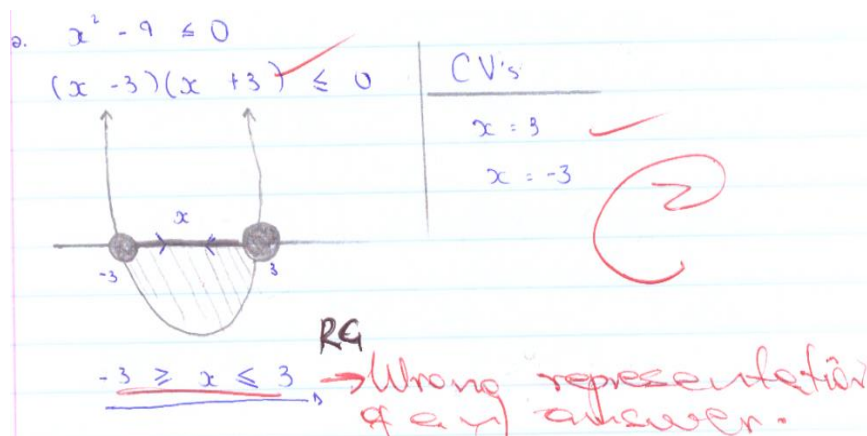 a. x² - 9 ≤ 0
(x - 3)(x + 3) ≤ 0
CV's
x = 3
x = -3
2
x
-3
3
RG
-3 ≥ x ≤ 3 → Wrong representation
of answer.